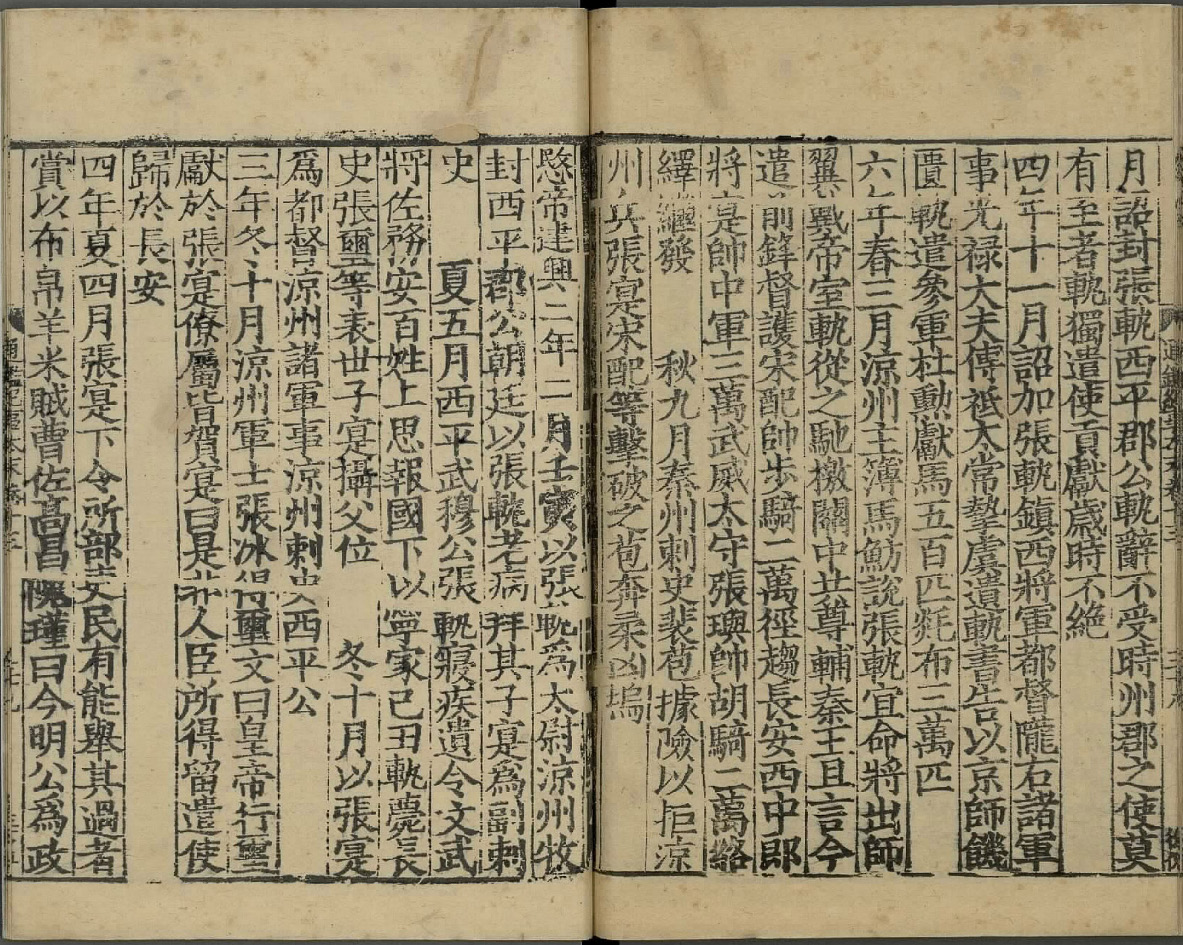 月詔封張軌西平郡公軌辭不受時州郡之使莫
有至者軌獨遣使貢獻歲時不絶
四年十一月詔加張軌鎮西將軍都督隴右諸軍
事光祿大夫傅祗太常摯虞遺軌書告以京師饑
匱軌遣參軍杜勲獻馬五百匹㲜布三萬匹
六年春三月涼州主簿馬魴説張軌宜命將出師
翼戴帝室軌從之馳檄關中共尊輔秦王且言今
遣前鋒督護宋配帥步騎二萬徑趨長安西中郎
將寔帥中軍三萬武威太守張璵帥胡騎二萬絡
繹繼發　秋九月秦州刺史裴苞據險以拒涼
州兵張寔宋配等擊破之苞奔柔凶塢
愍帝建興二年二月壬寅以張軌為太尉涼州牧
封西平郡公朝廷以張軌老病拜其子寔為副刺
史　夏五月西平武穆公張軌寢疾遺令文武
將佐務安百姓上思報國下以寧家己丑軌薨長
史張璽等表世子寔攝父位　冬十月以張寔
爲都督涼州諸軍事涼州刺史西平公
三年冬十月涼州軍士張冰得璽文曰皇帝行璽
獻於張寔僚屬皆賀寔曰是非人臣所得留遣使
歸於長安
四年夏四月張寔下令所部吏民有能舉其過者
賞以布帛羊米賊曹佐高昌隗瑾曰今明公爲政